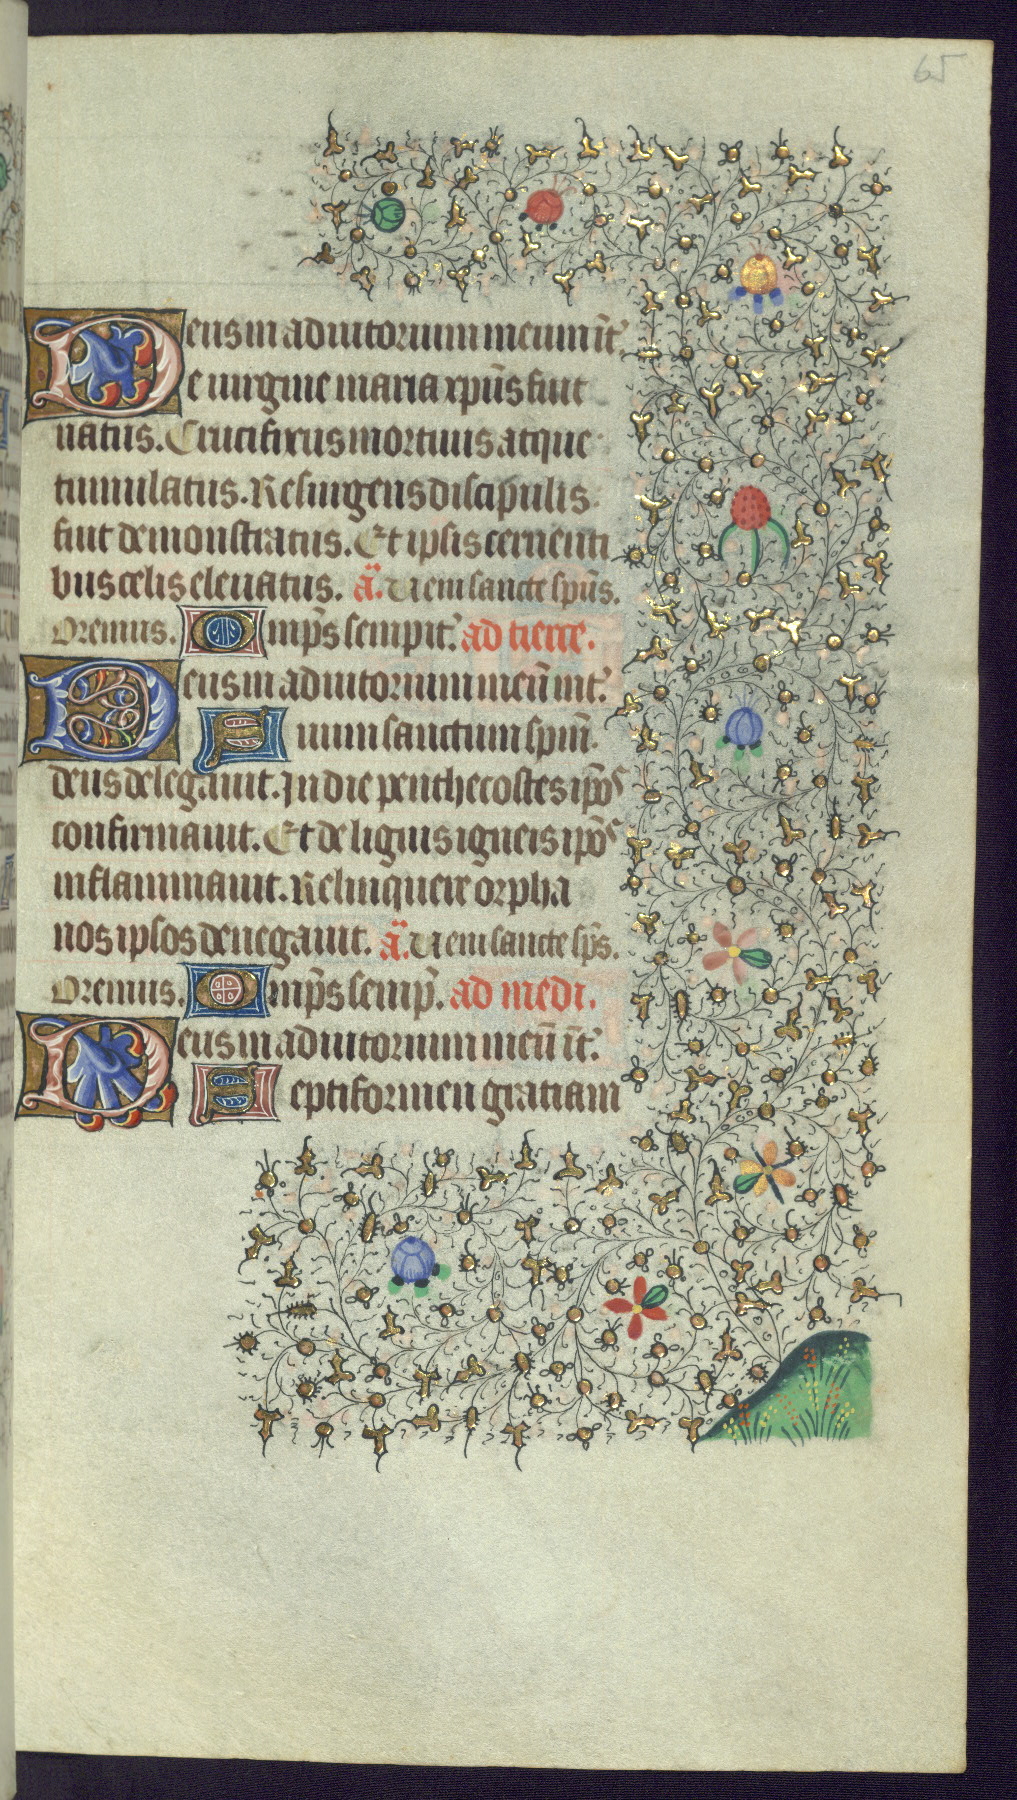 65
Deus in adiutorium meum īt᷑
De uirgine maria xpūs fuit
natus. Crucifixus mortuus atque
tumulatus. Resurgens discipulis
fuit demonstratus. Et ipsis cernenti
bus celis eleuatus. ā. Ueni sancte spūs.
Oremus. Omp̄s sempit᷑. ad tierce.
Deus in adiutorium meū int᷑.
Suum sanctum spm̄.
deus delegauit. In die penthecostes ip̄oˢ
confirmauit. Et de liguis igneis ip̄oˢ
inflammauit. Relinquere orpha
nos ipsos denegauit. ā. Ueni sancte sp̄s.
Oremus. Omp̄s semp̄. ad medi.
Deus in adiutorium meū īt᷑.
Septiformen gratiam